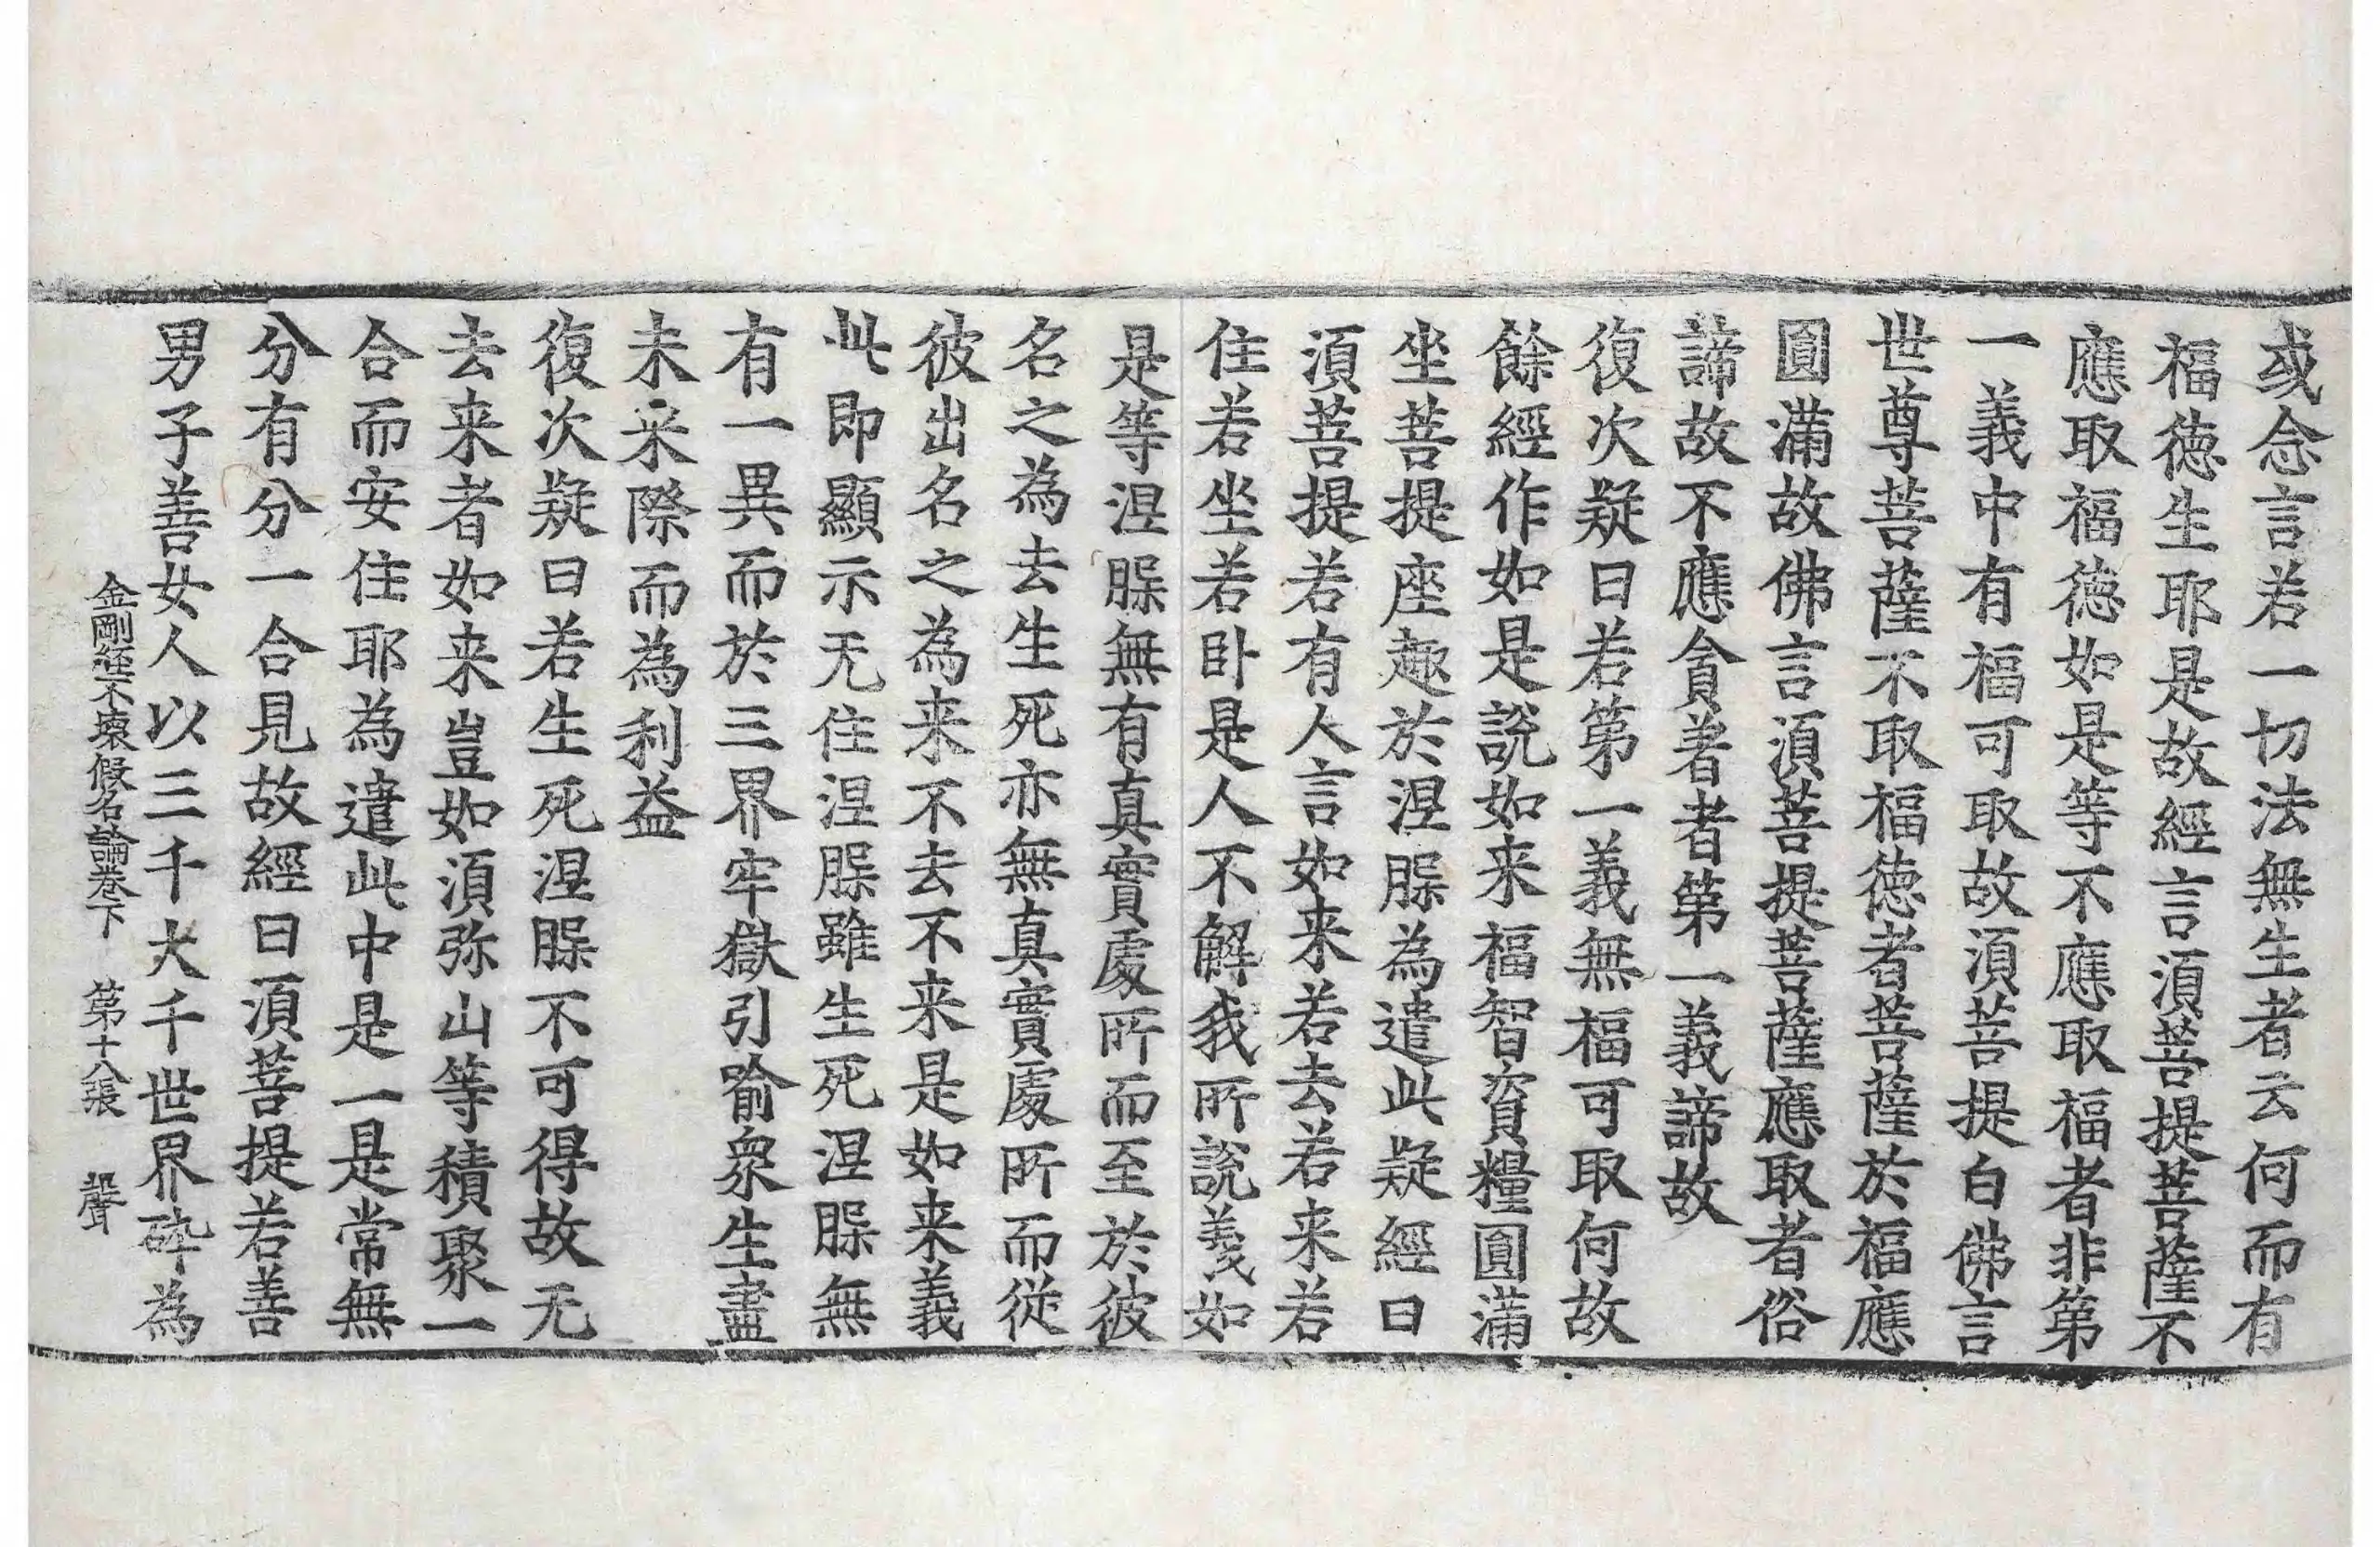 或念言若一切法無生者云何而有
福徳生耶是故經言湏菩提菩薩不
應取福徳如是等不應取福者非第
一義中有福可取故湏菩提白佛言
世尊菩薩不取福徳者菩薩於福應
圓滿故佛言湏菩提菩薩應取者俗
諦故不應貪著者第一義諦故
復次疑曰若第一義無福可取何故
餘經作如是說如来福智資糧圓滿
坐菩提座趣於涅脲為遣此疑經曰
湏菩提若有人言如来若去若来若
住若坐若卧是人不解我所說義如
是等涅脲無有真實處所而至於彼
名之為去生死亦無真實處所而從
彼出名之為来不去不来是如来義
此即顯示无住涅脲雖生死涅脲無
有一異而於三界牢獄引喻衆生盡
未来際而為利益
復次疑曰若生死涅脲不可得故无
去来者如来豈如湏弥山等積聚一
合而安住耶為遣此中是一是常無
分有分一合見故經曰湏菩提若善
男子善女人以三千大千世界碎為
金剛経不壞假名論卷下　第十八張　聲